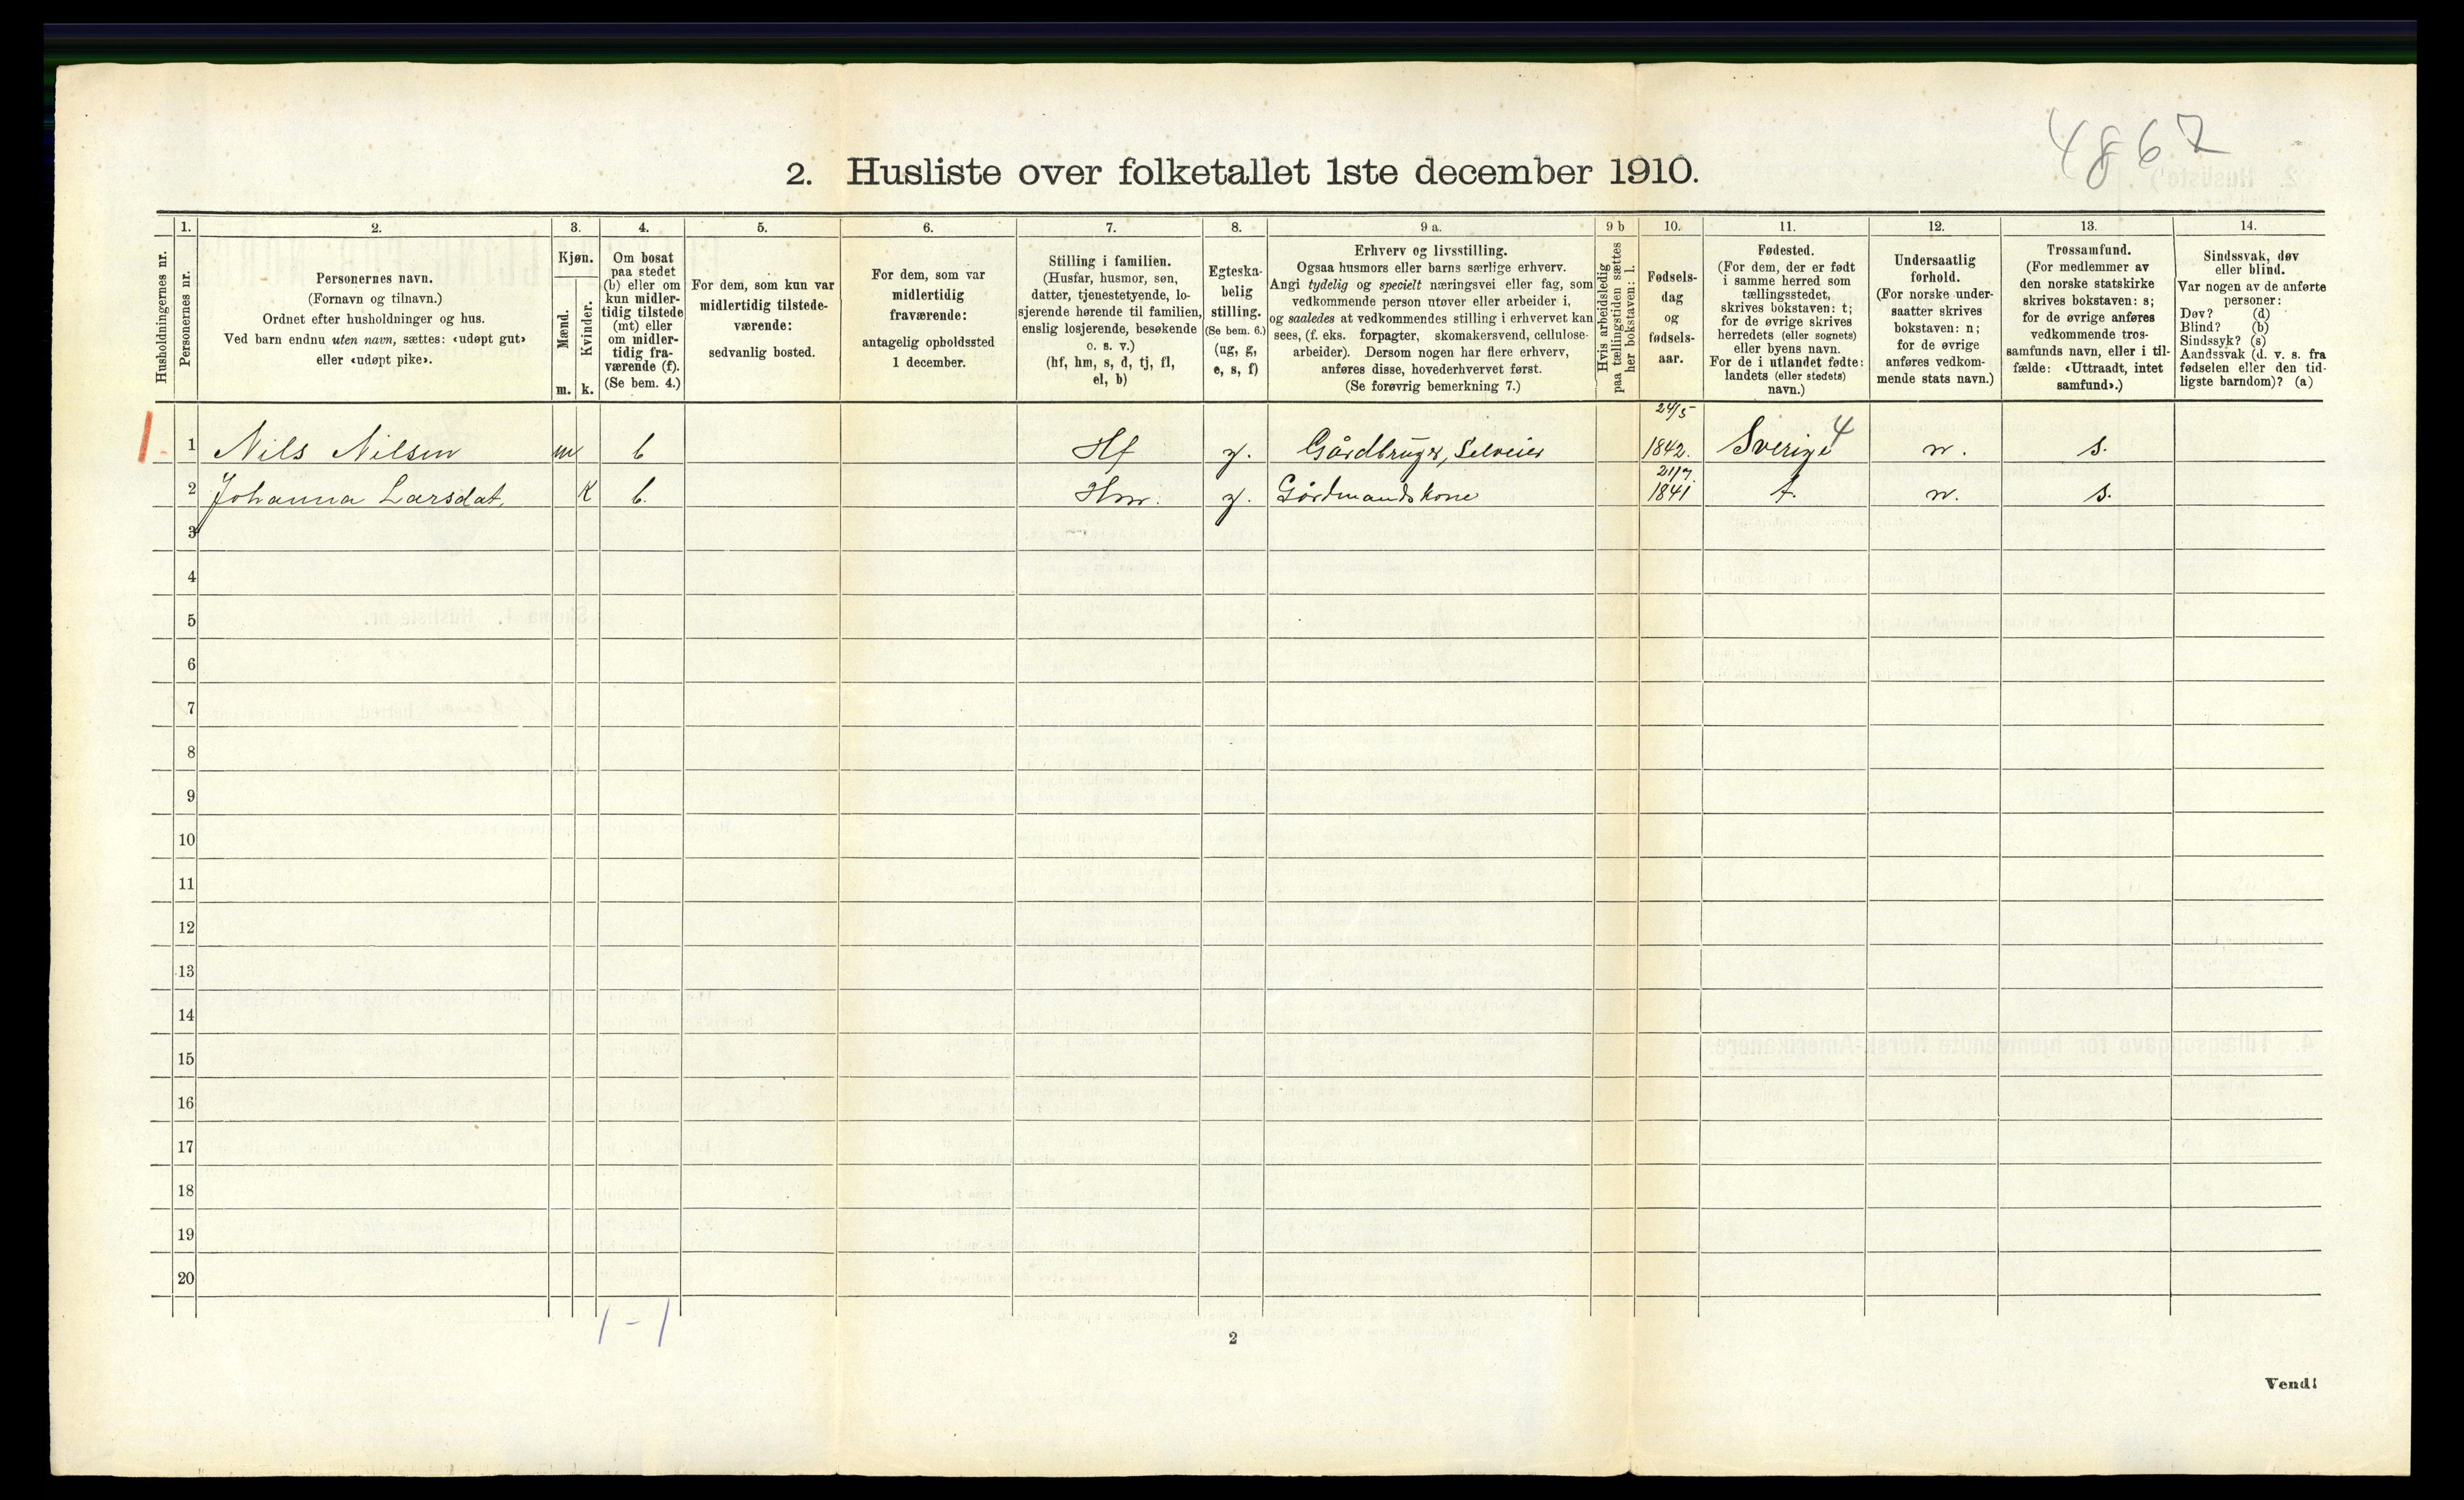 4867
2. Husliste over folketallet 1ste december 1910.
Husholdningernes nr.
1.
Personernes nr.
2.
Personernes navn.
(Fornavn og tilnavn.)
Ordnet efter husholdninger og hus.
Ved barn endnu uten navn, sættes: «udøpt gut»
eller «udøpt pike».
3.
Kjøn.
Mænd.
Kvinder.
m. k.
4.
Om bosat
paa stedet
(b) eller om
kun midler-
tidig tilstede
(mt) eller
om midler-
tidig fra-
værende (f).
(Se bem. 4.)
5.
For dem, som kun var
midlertidig tilstede-
værende:
sedvanlig bosted.
6.
For dem, som var
midlertidig
fraværende:
antagelig opholdssted
1 december.
7.
Stilling i familien.
(Husfar, husmor, søn,
datter, tjenestetyende, lo-
sjerende hørende til familien,
enslig losjerende, besøkende
o. s. v.)
(hf, hm, s, d, tj, fl,
el, b)
8.
Egteska-
belig
stilling.
(Se bem. 6.)
(ug, g,
e, s, f)
9 a.
Erhverv og livsstilling.
Ogsaa husmors eller barns særlige erhverv.
Angi tydelig og specielt næringsvei eller fag, som
vedkommende person utøver eller arbeider i,
og saaledes at vedkommendes stilling i erhvervet kan
sees, (f. eks. forpagter, skomakersvend, cellulose-
arbeider). Dersom nogen har flere erhverv,
anføres disse, hovederhvervet først.
(Se forøvrig bemerkning 7.)
9 b
Hvis arbeidsledig
paa tællingstiden sættes
her bokstaven: l.
10.
Fødsels-
dag
og
fødsels-
aar.
11.
Fødested.
(For dem, der er født
i samme herred som
tællingsstedet,
skrives bokstaven: t;
for de øvrige skrives
herredets (eller sognets)
eller byens navn.
For de i utlandet fødte:
landets (eller stedets)
navn.)
12.
Undersaatlig
forhold.
(For norske under-
saatter skrives
bokstaven: n;
for de øvrige
anføres vedkom-
mende stats navn.)
13.
Trossamfund.
(For medlemmer av
den norske statskirke
skrives bokstaven: s;
for de øvrige anføres
vedkommende tros-
samfunds navn, eller i til-
fælde: «Uttraadt, intet
samfund».)
14.
Sindssvak, døv
eller blind.
Var nogen av de anførte
personer:
Døv? (d)
Blind? (b)
Sindssyk? (s)
Aandssvak (d. v. s. fra
fødselen eller den tid-
ligste barndom)? (a)
1 1 Nils Nilsen m b Hf g. Gårdbruger, Selveier 24/5 1842. Sverige 4 n. s.
2 Johanna Larsdat. K b. Hm. g. Gårdmandskone 21/7. 1841 t. n. s.
3
4
5
6
7
8
9
10
11
12
13
14
15
16
17
18
19
20
1 - 1
2
Vend!